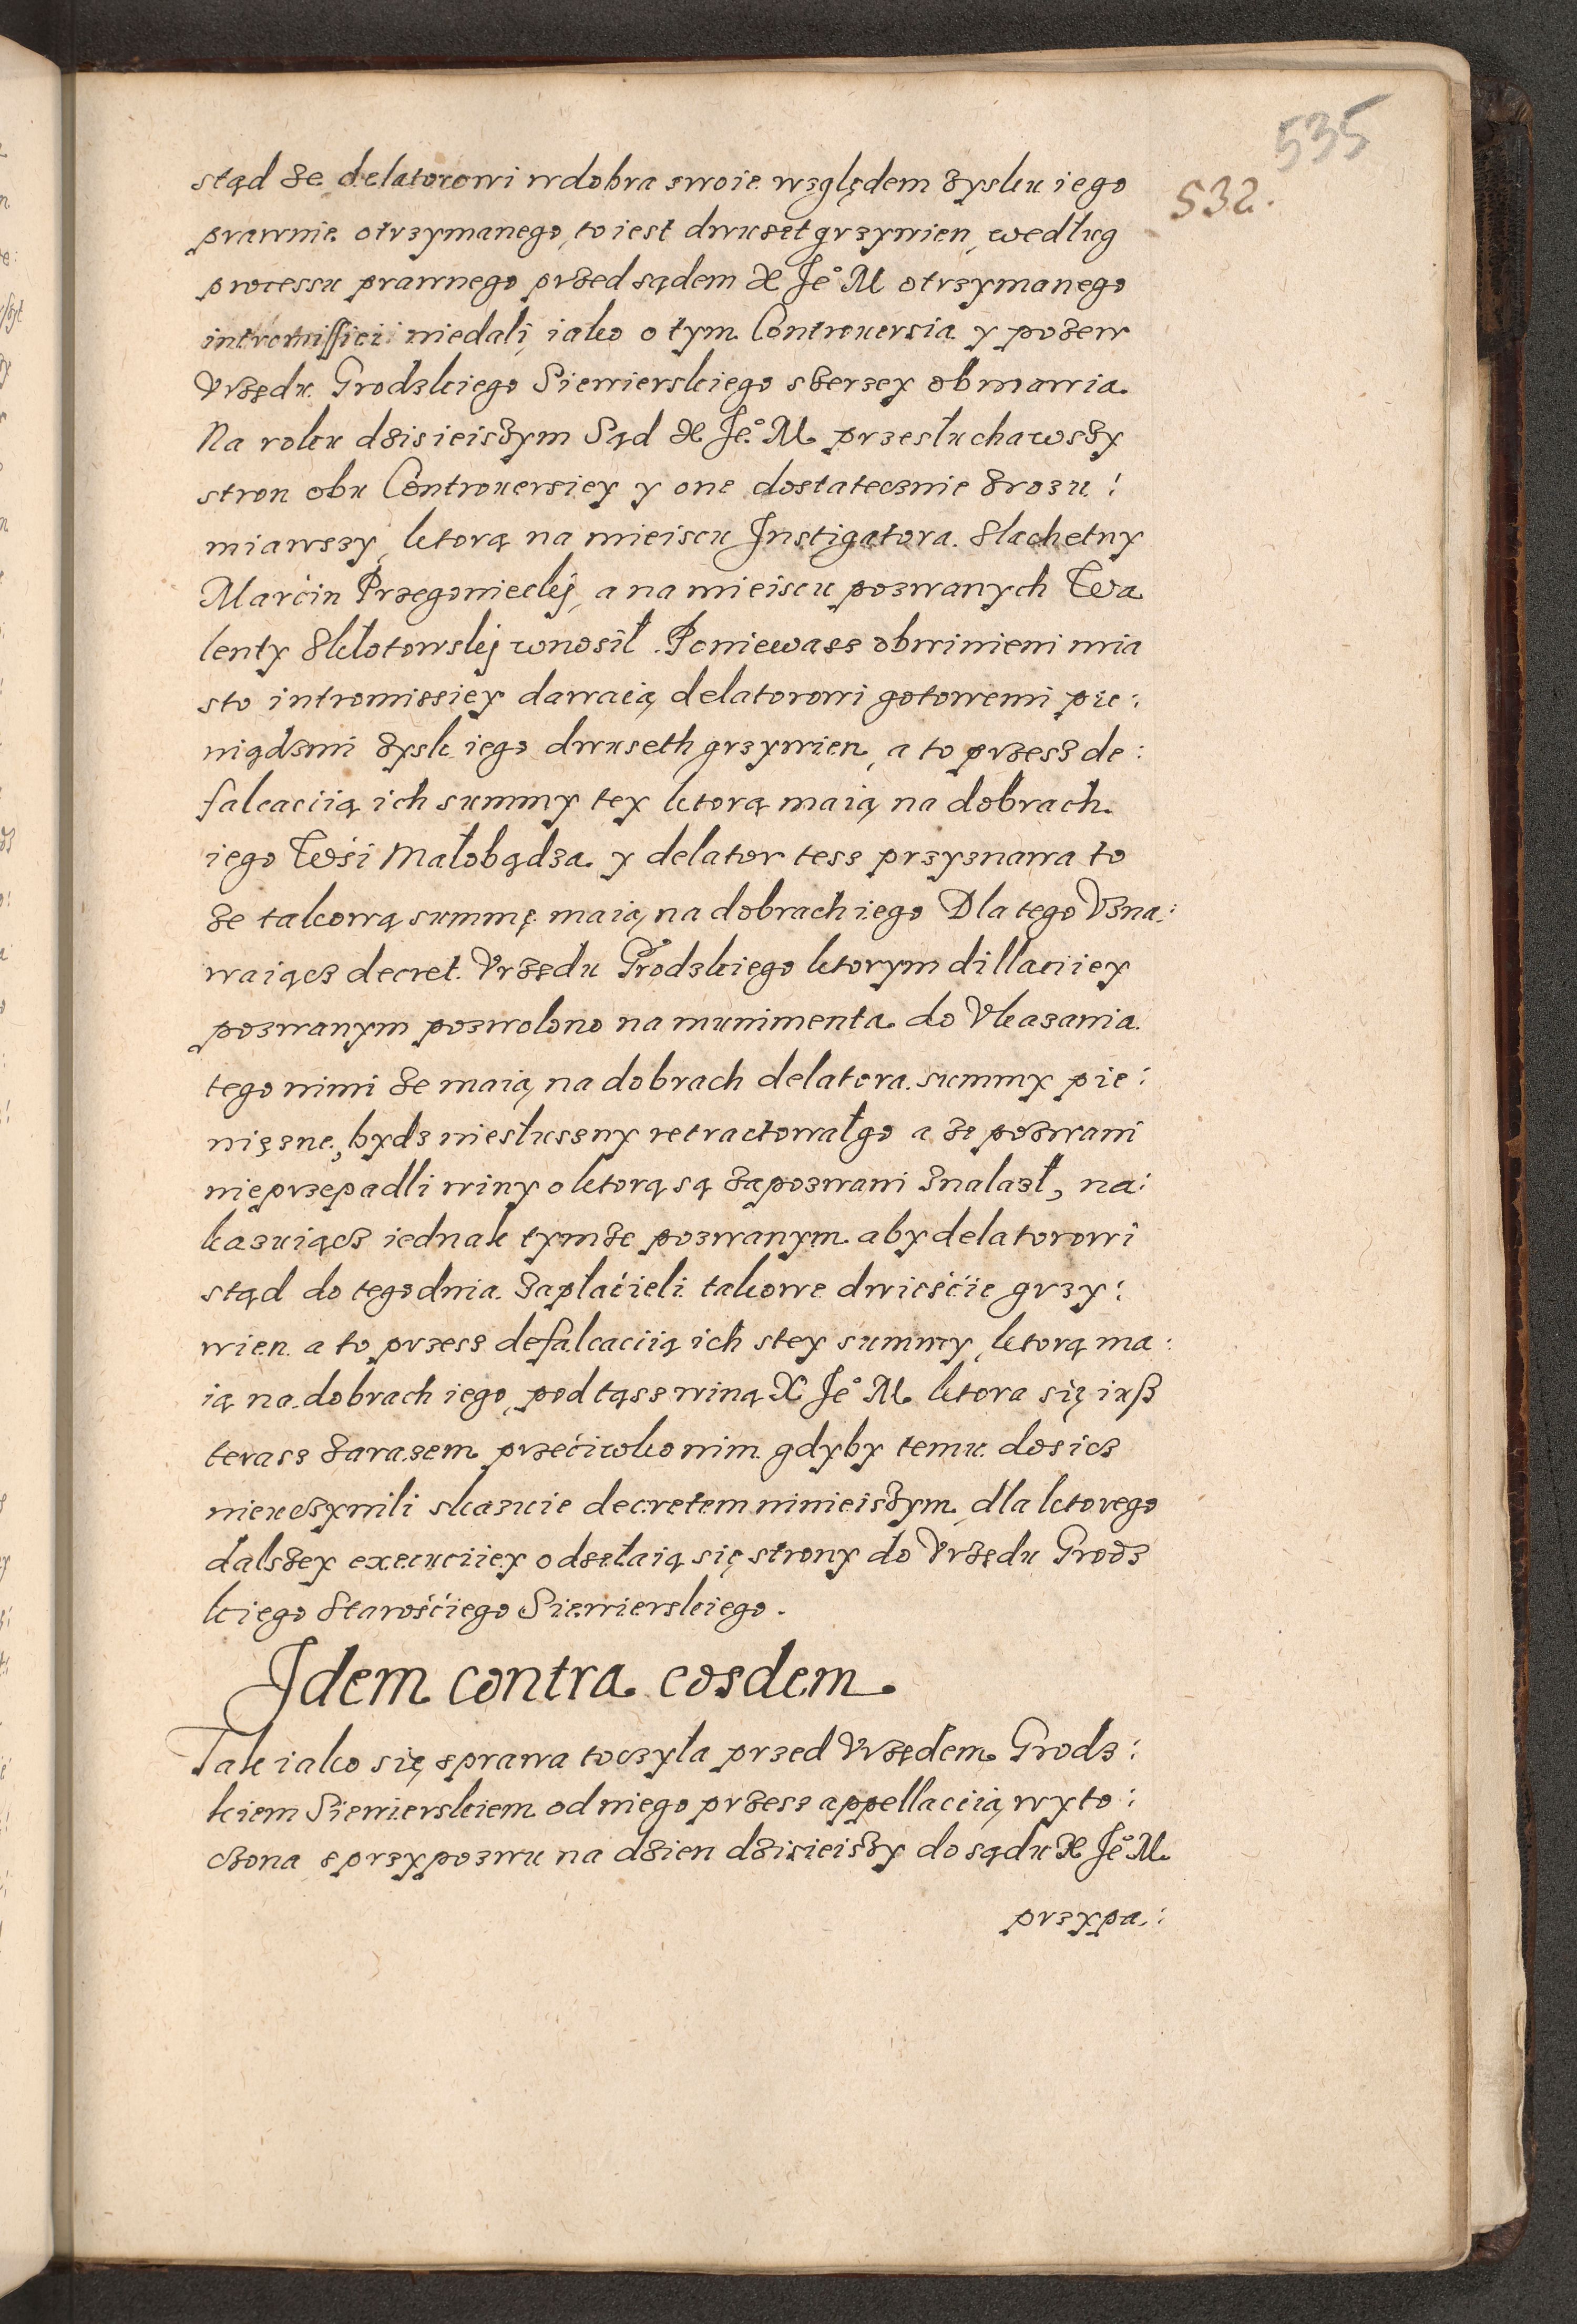 535
532.
stąd ze delatorowi wdobra swoie względem zysku iego
prawnie otrzymanego, to iest dwuset grzywien, według
processu prawnego przed sądem X Je° M otrzymanego
intromissiei niedali, iako o tym Controuersia y pozew
Vrzędu Grodzkiego Siewierskiego szerzey obmawia
Na roku dzisieiszym Sąd X Je° M przesłuchawszy
stron obu Controuersiey y one dostatecznie zrozu:
miawszy, ktorą na mieiscu Jnstigatora Slachetny
Marćin Przegoniecky, a na mieiscu pozwanych Wa
lenty Skłotowsky wnosił. Poniewasz obwinieni mia
sto intromissiey dawaią delatorowi gotowemi pie:
niądzmi zysk iego dwuseth grzywien, a to przesz de:
falcaciią ich summy tey ktorą maią na dobrach
iego Wśi Małobądza y delator tesz przyznawa to
ze takową summę maią na dobrach iego Dla tego Vzna:
waiącz decret Vrzędu Grodzkiego ktorym dillaciiey
pozwanym pozwolono na munimenta do Vkazania
tego nimi ze maią na dobrach delatora summy pie:
nięzne, bydz niesłuszny retractował go a ze pozwani
nieprzepadli winy o ktorą są zapozwani znalazł, na:
kazuiącz iednak tymze pozwanym aby delatorowi
stąd do tego dnia zapłaćieli takowe dwieśćie grzy:
wien a to przesz defalcaciią ich stey summy, ktorą ma:
ią na dobrach iego, pod tąsz winą X Je° M ktora się iusz
terasz zarazem przećiwko nim gdyby temu dosicz
nieuczynili skazuie decretem ninieiszym, dla ktorego
dalszey execuciiey odsełaią się strony do Vrzędu Grodz
kiego Starośćiego Siewierskiego.
Jdem contra eosdem
Tak iako się sprawa toczyła przed Vrzędem Grodz:
kiem Siewierskiem od niego przesz appellaciią wyto:
czona s przypozwu na dzien dzisieiszy do sądu X Je° M
przypa: